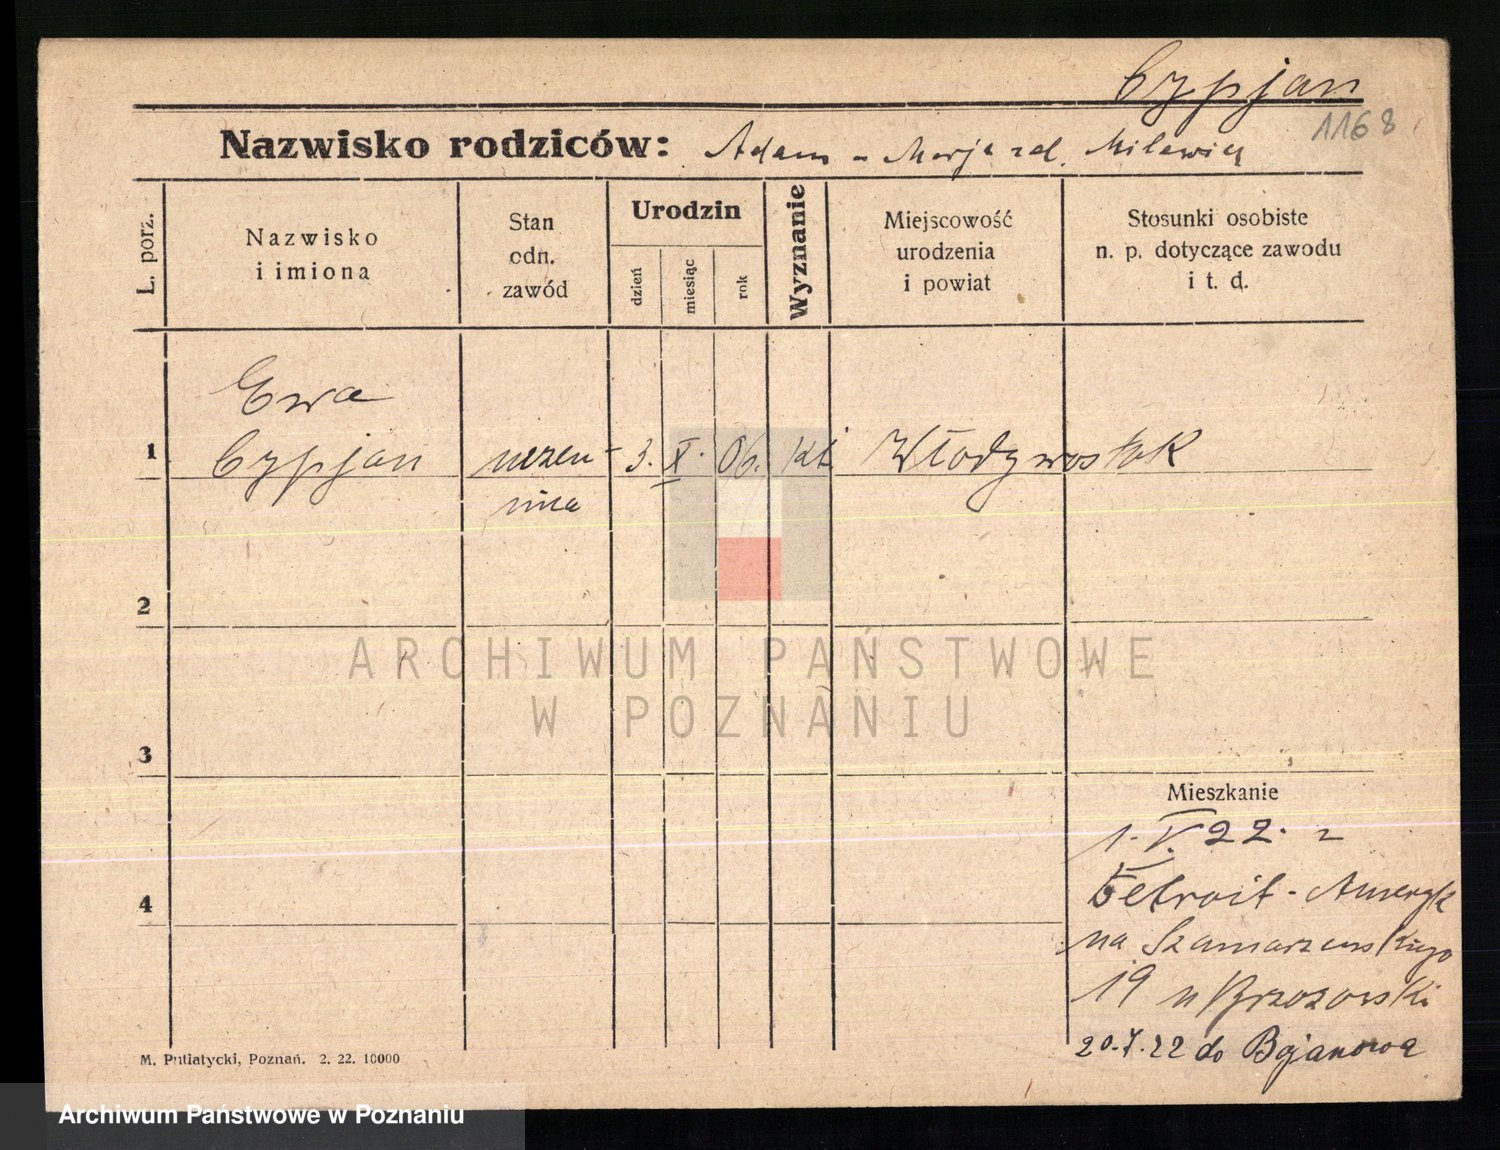 Cypjan
1168
Nazwisko rodziców: Adam - Marja zd.
L. porz.
Nazwisko
i imiona
Stan
odn.
zawód
Urodzin
dzień
miesiąc
rok
Wyznanie
Miejscowość
urodzenia
i powiat
Stosunki osobiste
n. p. dotyczące zawodu
i t. d.
Ewa
1 Cypjan uczen- 3. X. 06. kt. Włodywostok
nica
2
ARCHIWUM PAŃSTWOWE
W POZNANIU
3
Mieszkanie
1. V. 22. z
4 Detroit - Ameryk
na Szamarzewskiego
19 u Brzozowski
20.X.22 do Bojanowa
M. Putiatycki, Poznań. 2. 22. 10000
Archiwum Państwowe w Poznaniu